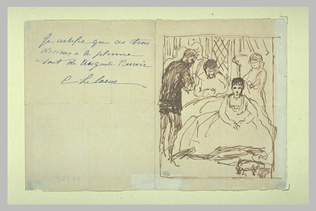 Je certifie que ces trois
dessins à la plume
sont de Auguste Renoir